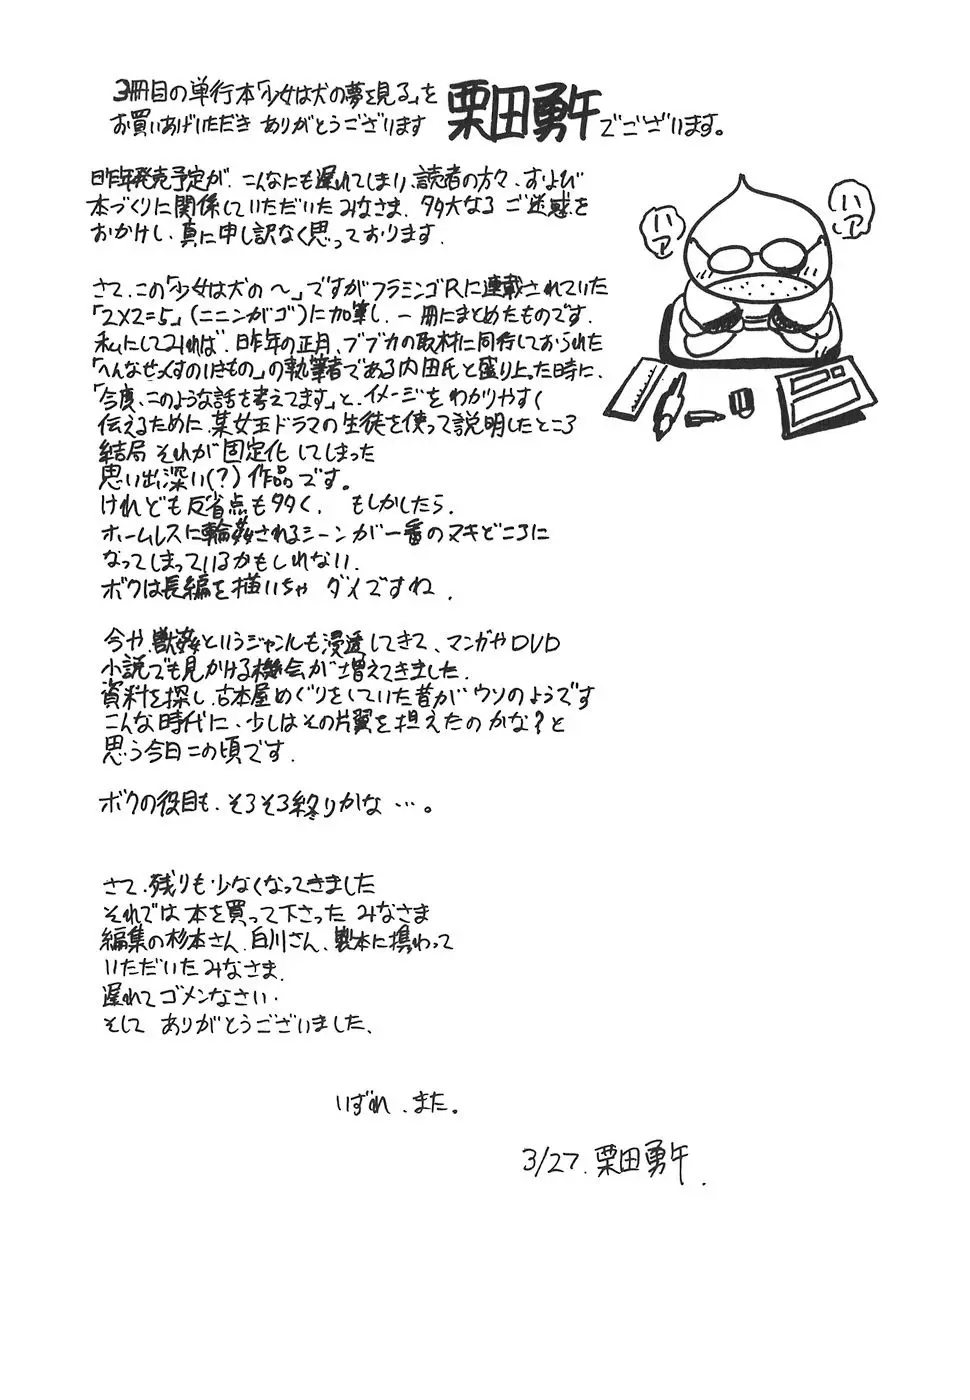 3冊目の単行本「少女は犬の夢を見る。」を
お買いあげいただき ありがとうございます
栗田勇午でございます。
ハァ
ハァ
昨年発売予定が、こんなにも遅れてしまい、読者の方々、および
本づくりに関係していただいたみなさま、多大なる ご迷惑を
おかけし、真に申し訳なく思っております。
さて、この「少女は犬の〜」ですがフラミンゴRに連載されていた
「2×2=5」(ニニンがゴ)に加筆し、一冊にまとめたものです。
私にしてみれば、昨年の正月、ブブカの取材に同行しておられた
「へんなせっくすのいきもの」の執筆者である内田氏と盛り上った時に、
「今度、このような話を考えてます」と、イメージをわかりやすく
伝えるために、某女王ドラマの生徒を使って説明したところ
結局 それが固定化してしまった
思い出深い(?)作品です。
けれども反省点も多く、もしかしたら、
ホームレスに輪姦されるシーンが一番のヌキどころに
なってしまっているかもしれない。
ボクは長編を描いちゃ ダメですね。
今や、獣姦というジャンルも浸透してきて、マンガやDVD
小説でも見かける機会が増えてきました。
資料を探し、古本屋めぐりをしていた昔が ウソのようです
こんな時代に、少しはその片翼を担えたのかな?と
思う今日この頃です。
ボクの役目も、そろそろ終りかな…。
さて、残りも少なくなってきました
それでは 本を買って下さった みなさま
編集の杉本さん、白川さん、製本に携わって
いただいたみなさま、
遅れてゴメンなさい。
そして ありがとうございました、
いずれ、また。
3/27. 栗田勇午.